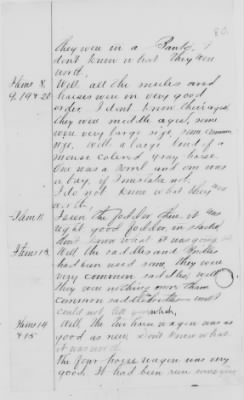 80.
they were in a Panty. I
don't know what they was
worth.
Items 8. Well all the mules and
9. 19 & 20 horses were in very good
order. I dont know their ages
they were middle aged, some
were very large size, some common
size, will a large kind of a
mouse colored gray horse.
One was a sorrel and one was
a bay, if I mistake not.
I do not know what they was
worth.
Item 11. I seen the fodder there it was
right good fodder, in stacks,
don't know what it was
Item 13. Well the saddles and
had been used some they were
very common saddles, well
they were nothing more than
common saddles
could not tell which.
Items 14 Well, the wagon was as
& 15 good as new, don't know what
it was worth.
The four-horse wagon was very
good. It had been run some